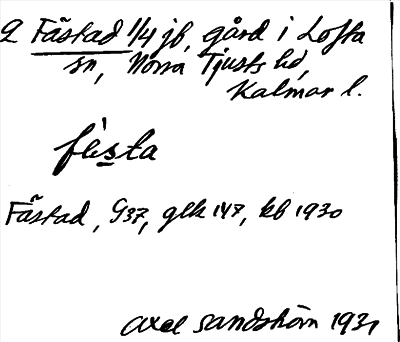 2 Fästad 1/4 jb, gård i Lofta
sn, Norra Tjusts hd,
Kalmar l.
fè̀sta
Fästad, G37, glk 147, kb 1930
Axel Sandström 1931